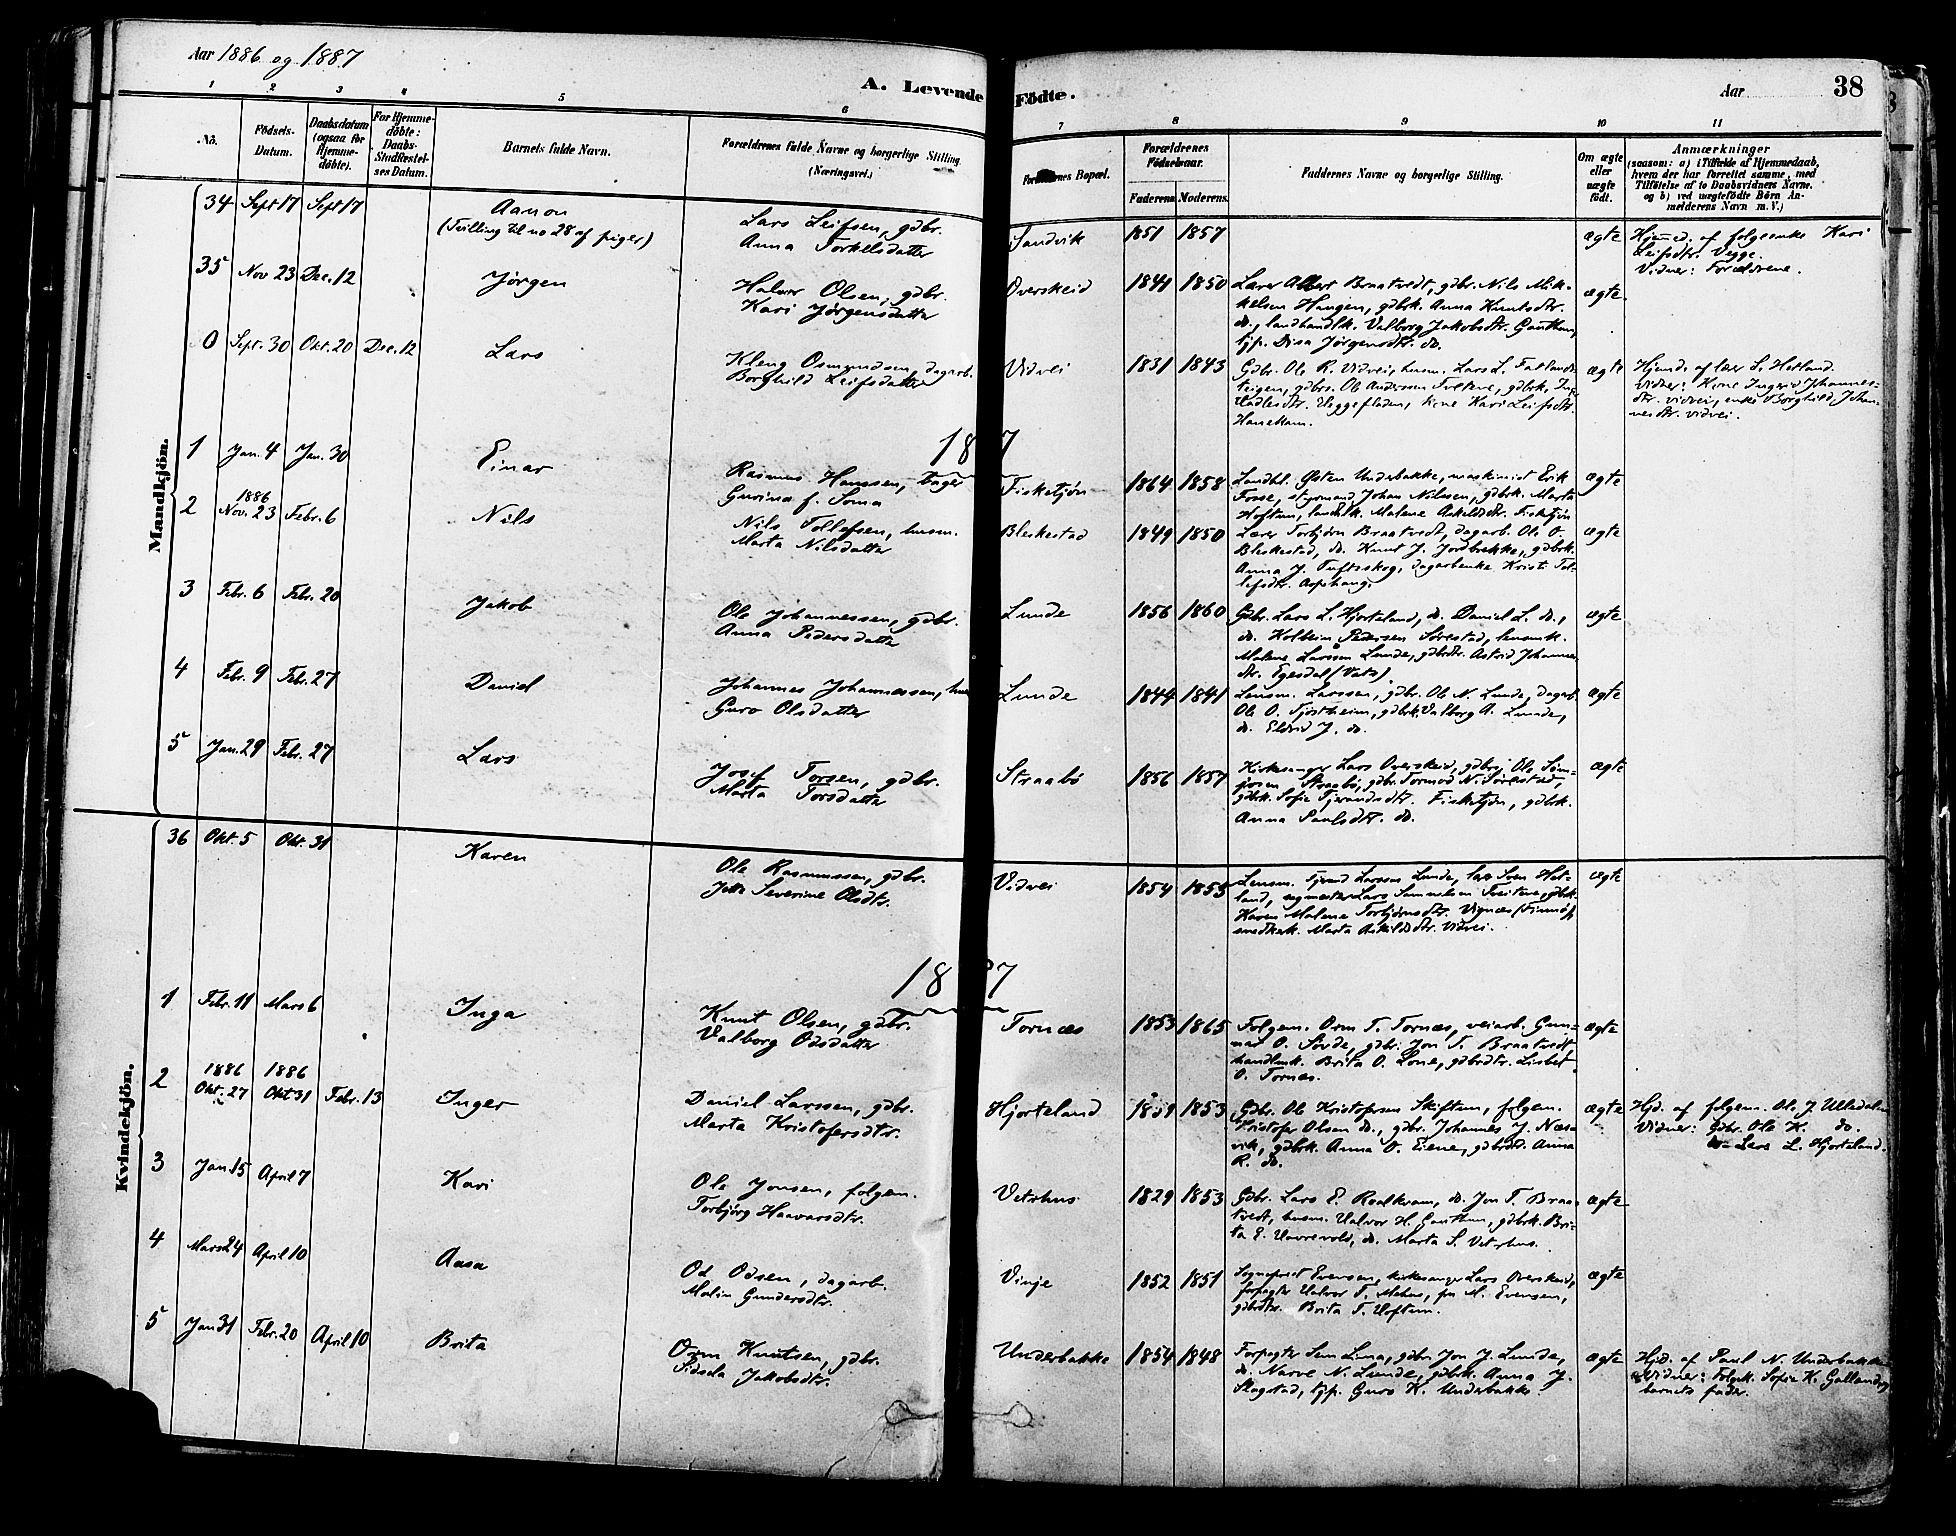 Aar 1886 og 1887
A. Levende Födte.
Aar
38
1 2 3 4 5 6 7 8 9 10 11
No.
Födsels-
Datum.
Daabsdatum
(ogsaa for
Hjemme-
döbte).
For Hjemme-
döbte:
Daabs-
Stadfæstel-
ses Datum.
Barnets fulde Navn.
Forældrenes fulde Navne og borgerlige Stilling
(Næringsvei.)
Forældrenes Bopæl.
Forældrenes
Födselsaar.
Faderens Moderens
Faddernes Navne og borgerlige Stilling.
Om ægte
eller
uægte
født.
Anmærkninger
(saasom: a) i Tilfælde af Hjemmedaab,
hvem der har forrettet samme, med
Tilföielse af to Daabsvidners Navne,
og b) ved uægtefödte Börn An-
melderens Navn m. V.)
Mandkjön.
34 Sept 17 Sept 17 Aanon
(Tvilling til no 28 af piger)
Lars Leifsen, gdbr.
Anna Torkelsdatter
Sandvik 1851 1857 ægte
Hjemmed. af folgeenke Kari
Leifsdtr. Vegge.
Vidner: Forældrene.
35 Nov 23 Dec. 12 Jørgen
Halvor Olsen, gdbr.
Kari Jørgensdatter
Overskeid 1844 1850
Lærer Albert Braatvedt, gdbr. Nils Mik-
kelsen Haugen, gdbrk. Anna Knutsdtr.
do., landhandlk. Valborg Jakobsdtr. Gauthun,
tjp. Disa Jørgensdtr. do.
ægte
0 Sept. 30 Okt. 20 Dec. 12 Lars
Kleng Osmundsen, dagarb.
Borghild Leifsdatter
Vidvei 1831 1843
Gdbr. Ole R. Vidvei, husm. Lars L.
gdbrs. Ole Andersen
Veggefladen, Kari Leifsdtr.
ægte
Hjemd. af lær S. Hetland.
Vidner: Kone Ingerid Johannes-
dtr. Vidvei, enke Borghild Johan-
nesdtr. Vidvei.
1887
1 Jan. 4 Jan. 30 Einar
Rasmus Hanssen,
Gurina f. Soma
Fisketjøn 1864 1858
Landhl. Østen Underbakke, maskinist Erik
Fosse, styrmand Johan Nilssen, gdbrk. Marta
Hoftun, landhlk. Malene Askildsdtr. Fisketjøn
ægte
2 1886
Nov. 23 Febr. 6 Nils
Nils Tollefsen, husm.
Marta Nilsdatter
Bleskestad 1849 1850
Lærer Torbjørn Braatvedt, dagarb. Ole O.
Bleskestad, do. Knut J. Jordbrekke, gdbrk.
Anna J. Tuftsskog, dagarbenke Kristi Tol-
lefsdtr.
ægte
3 Febr. 6 Febr. 20 Jakob
Ole Johannessen, gdbr.
Anna Pedersdatter
Lunde 1856 1860
Gdbr. Lars L. Hjorteland, do. Daniel L. do.,
do. Kolbein Pedersen Sørestad, lensmk.
Malene Larssen Lunde, gdbrdtr. Astrid Johannes-
dtr. Egesdal (Vats).
ægte
4 Febr. 9 Febr. 27 Daniel
Johannes Johannessen,
Guro Olsdatter
Lunde 1844 1841
Lensm. Larssen, gdbr. Ole N. Lunde, dagarb.
Ole O. Tjøstheim, gdbrk. Valborg A. Lunde,
do. Eldrid J. do.
ægte
5 Jan. 29 Febr. 27 Lars
Josef Torsen, gdbr.
Marta Torsdatter
Straabø 1856 1857
Kirkesanger Lars Overskeid, gdbr. Ole Sim-
Straabø, gdbr. Tormod N. Sørestad,
gdbrk. Sofie Tjerandsdtr. Fisketjøn, gdbrk.
Anna Paulsdtr. do.
ægte
Kvindekjön.
36 Okt. 5 Okt. 31 Karen
Ole Rasmussen, gdbr.
Severine Olsdtr.
Vidvei 1854 1855
Lensm. Tjerand Larssen Lunde, lær Sven Het-
land, Lars Samuelsen gdbrk.
Karen Malene Torbjørnsdtr. Vignæs (Finnø),
smedkerk. Marta Askildsdtr. Vidvei.
ægte
1887
1 Febr. 11 Mars 6 Inga
Knut Olsen, gdbr.
Valborg Odsdatter
Tornæs 1853 1865
Folgem. Orm T. Tornæs, veiarb. Gun-
nar O. Søvde, gdbr. Jon T. Braatvedt
handlmk. Brita O. Lone, gdbrdtr. Lisbet
O. Tornæs.
ægte
2 1886 1886
Okt. 27 Okt 31 Febr. 13 Inger
Daniel Larssen, gdbr.
Marta Kristofersdtr.
Hjorteland 1859 1853
Gdbr. Ole Kristofersen Skiftun, folgem.
Kristofer Olsen do., gdbr. Johannes J. Næs-
vik, gdbrk. Anna O. Eiene, gdbrdtr. Anna
R. do.
ægte
Hjd. af folgem. Ole J.
Vidner: Gdbr. Ole K. do.
Lars L. Hjorteland.
3 Jan 15 April 7 Kari
Ole Jonsen, folgem.
Torbjørg Haavarsdtr.
Vetrhus 1829 1853
Gdbr. Lars E. Roalkvam, do. Jon T. Braa-
tvedt, husm. Halvor H. Gauthun, gdbrk. Bri-
ta E. Havrevold, do. Marta S. Vetrhus.
ægte
4 Mars 24 April 10 Aasa
Od Odsen, dagarb.
Malin Gundersdtr.
Vinje 1852 1851
Sogneprest Evensen, kirkesanger Lars Overskeid,
forpagter Halvor T. Mehus, fru M. Evensen,
gdbrdtr. Brita T. Hoftun.
ægte
5 Jan 31 Febr. 20 April 10 Brita
Orm Knutsen, gdbr.
Sidsela Jakobsdtr.
Underbakke 1854 1848
Forpagter Sem Luna, gdbr. Jon J. Lunde,
do. Narve N. Lunde, gdbrk. Anna J.
Skogstad, tjp. Guro K. Underbakke.
ægte
Hjd. af Paul N. Underbakke
Vidner: Folgk. Sofie K.
barnets fader.